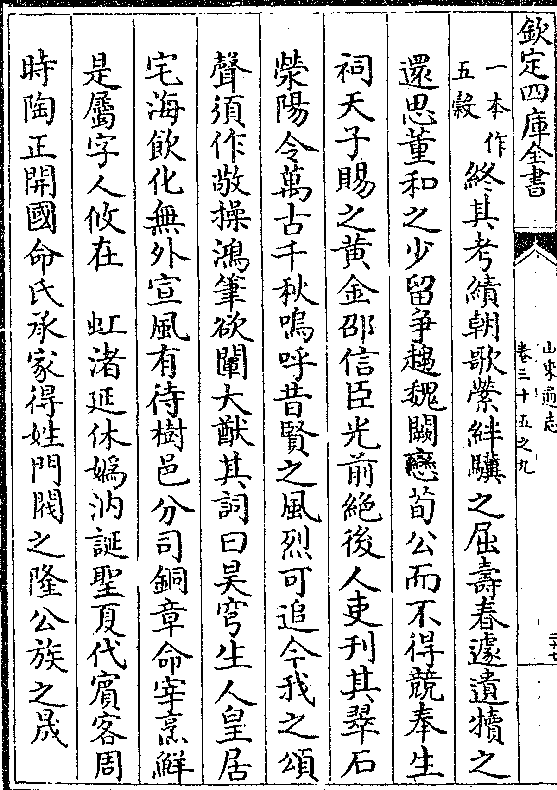 欽定四庫全書
山東通志
卷三十五之九
一本作五穀終其考績朝歌縈絆驥之屈壽春遽遺犢之
還思董和之少留爭趨魏闕戀荀公而不得競奉生
祠天子賜之黃金邵信臣光前絕後人吏刊其翠石
滎陽令萬古千秋嗚呼昔賢之風烈可追今我之頌
聲須作敢操鴻筆欲闡大猷其詞曰昊穹生人皇居
宅海飲化無外宣風有待樹邑分司銅章命宰烹鮮
是屬字人攸在　虹渚延休媯汭誕聖夏代賓客周
時陶正開國命氏承家得姓門閥之隆公族之晟